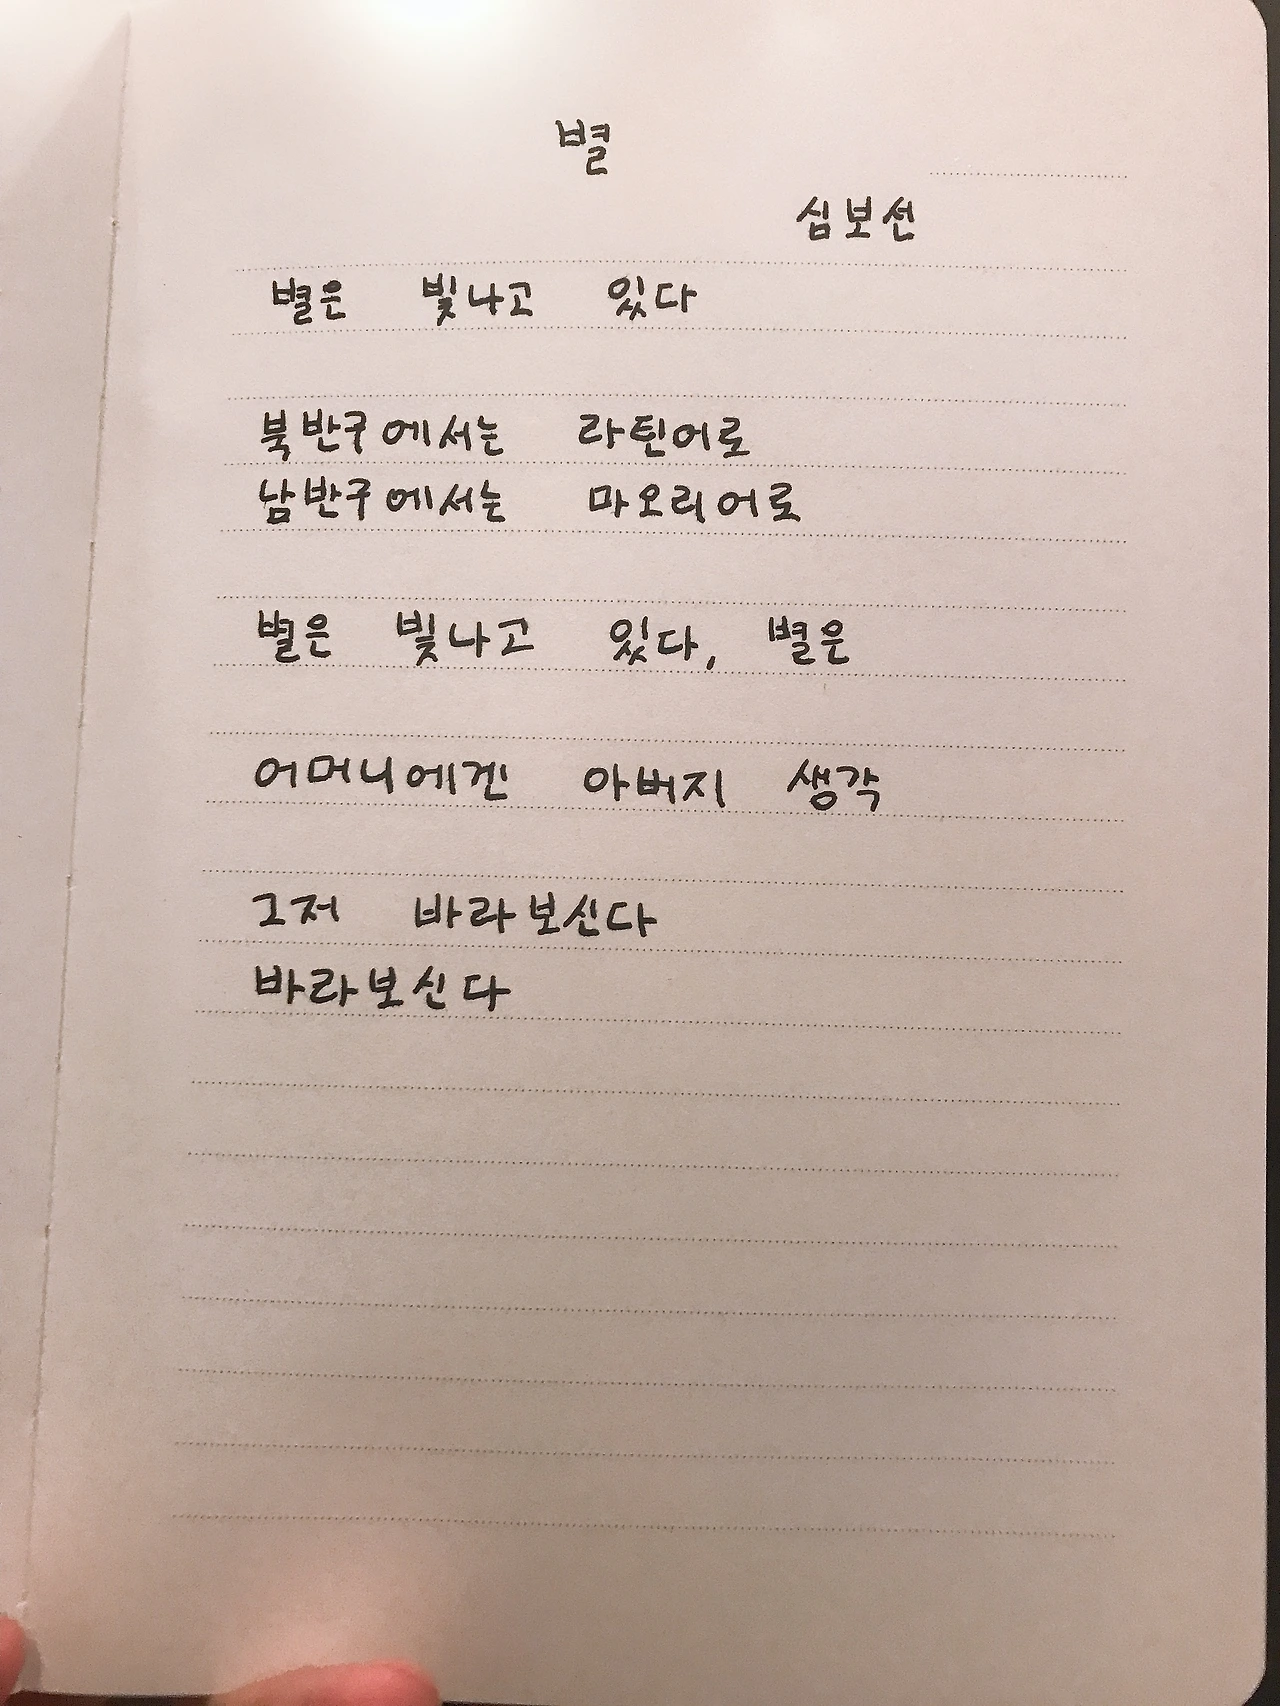 별
심보선
별은 빛나고 있다
북반구에서는 라틴어로
남반구에서는 마오리어로
별은 빛나고 있다, 별은
어머니에겐 아버지 생각
그저 바라보신다
바라보신다